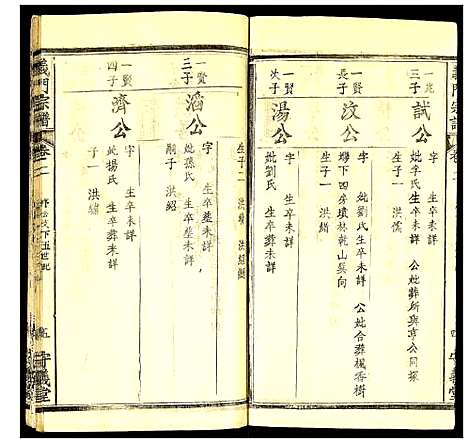 義門宗譜
一
三子
試公
字 生卒未詳 公妣葬所與亨公同
妣李氏 生卒未詳
子一 洪儒
一賢
長子
汶公
字 生卒未詳 公妣合葬楓香樹
妣劉氏 生卒未詳
壪下四房墳林乾山巽向
子一 洪緒
一賢
次子
湯公
字 生卒葬未詳
妣劉氏
生子二
一賢
三子
滔公
字 生卒葬未詳
妣孫氏 生卒葬未詳
嗣子 洪紹
一賢
四子
濟公
字 生卒葬未詳
妣楊氏 生卒葬未詳
子一 洪繡
義門宗譜
卷二
下五世紀
五
守義堂